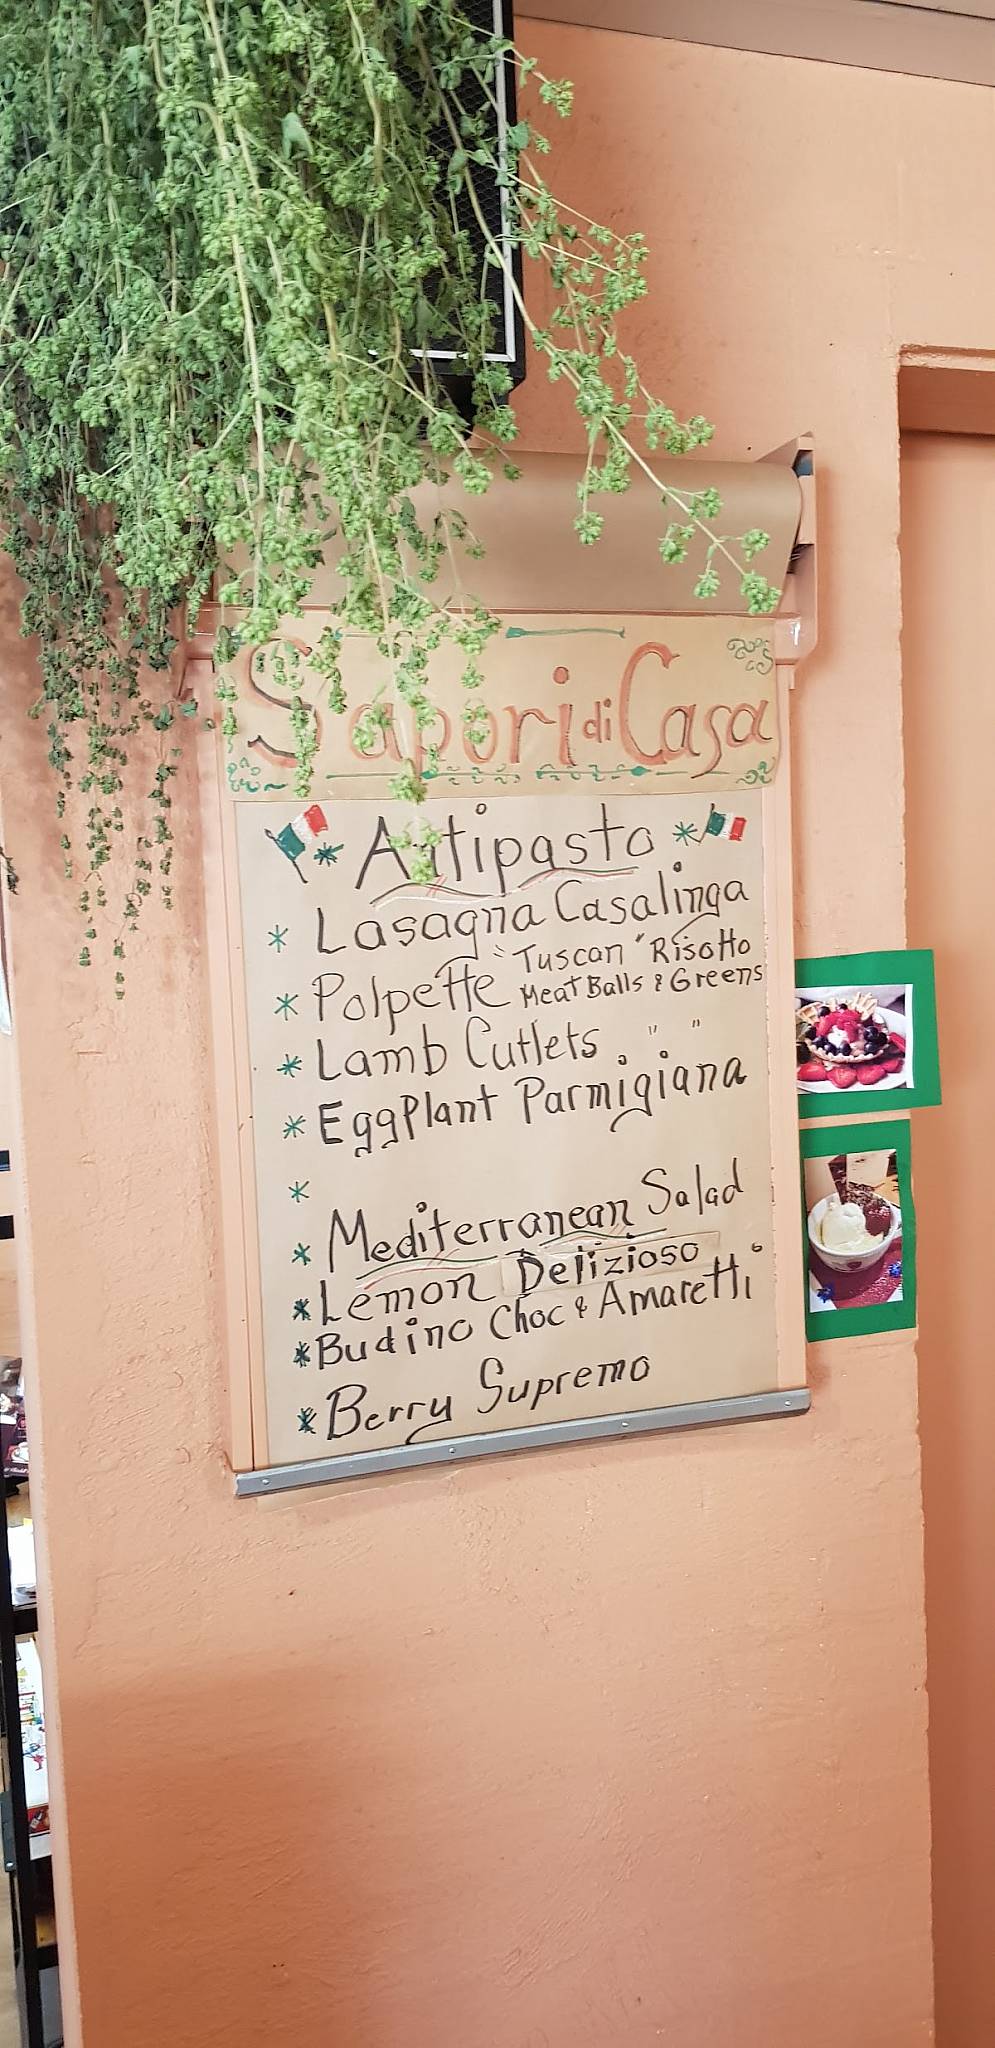 Sapori di Casa
Antipasto
* Lasagna Casalinga
* Polpette "Tuscan" Risotto
Meat Balls & Greens
* Lamb Cutlets " "
* EggPlant Parmigiana
*
* Mediterranean Salad
* Lemon Delizioso
* Budino Choc & Amaretti
* Berry Supremo